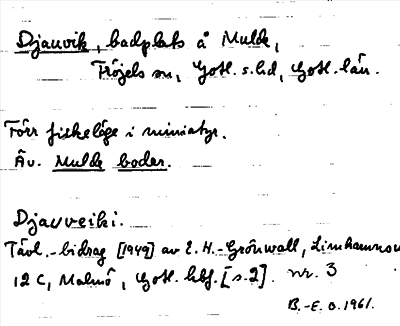 Djauvik, badplats å Mulde,
Fröjels sn, Gotl. s. hd, Gotl. län.
Förr fiskeläge i miniatyr.
Äv. Mulde bodar.
Djauveiki.
Tävl.-bidrag [1949] av E. H.-Grönwall, Limhamnsv
12 C, Malmö, Gotl. hbf. [s. 2]. nr. 3
B.-E. O. 1961.